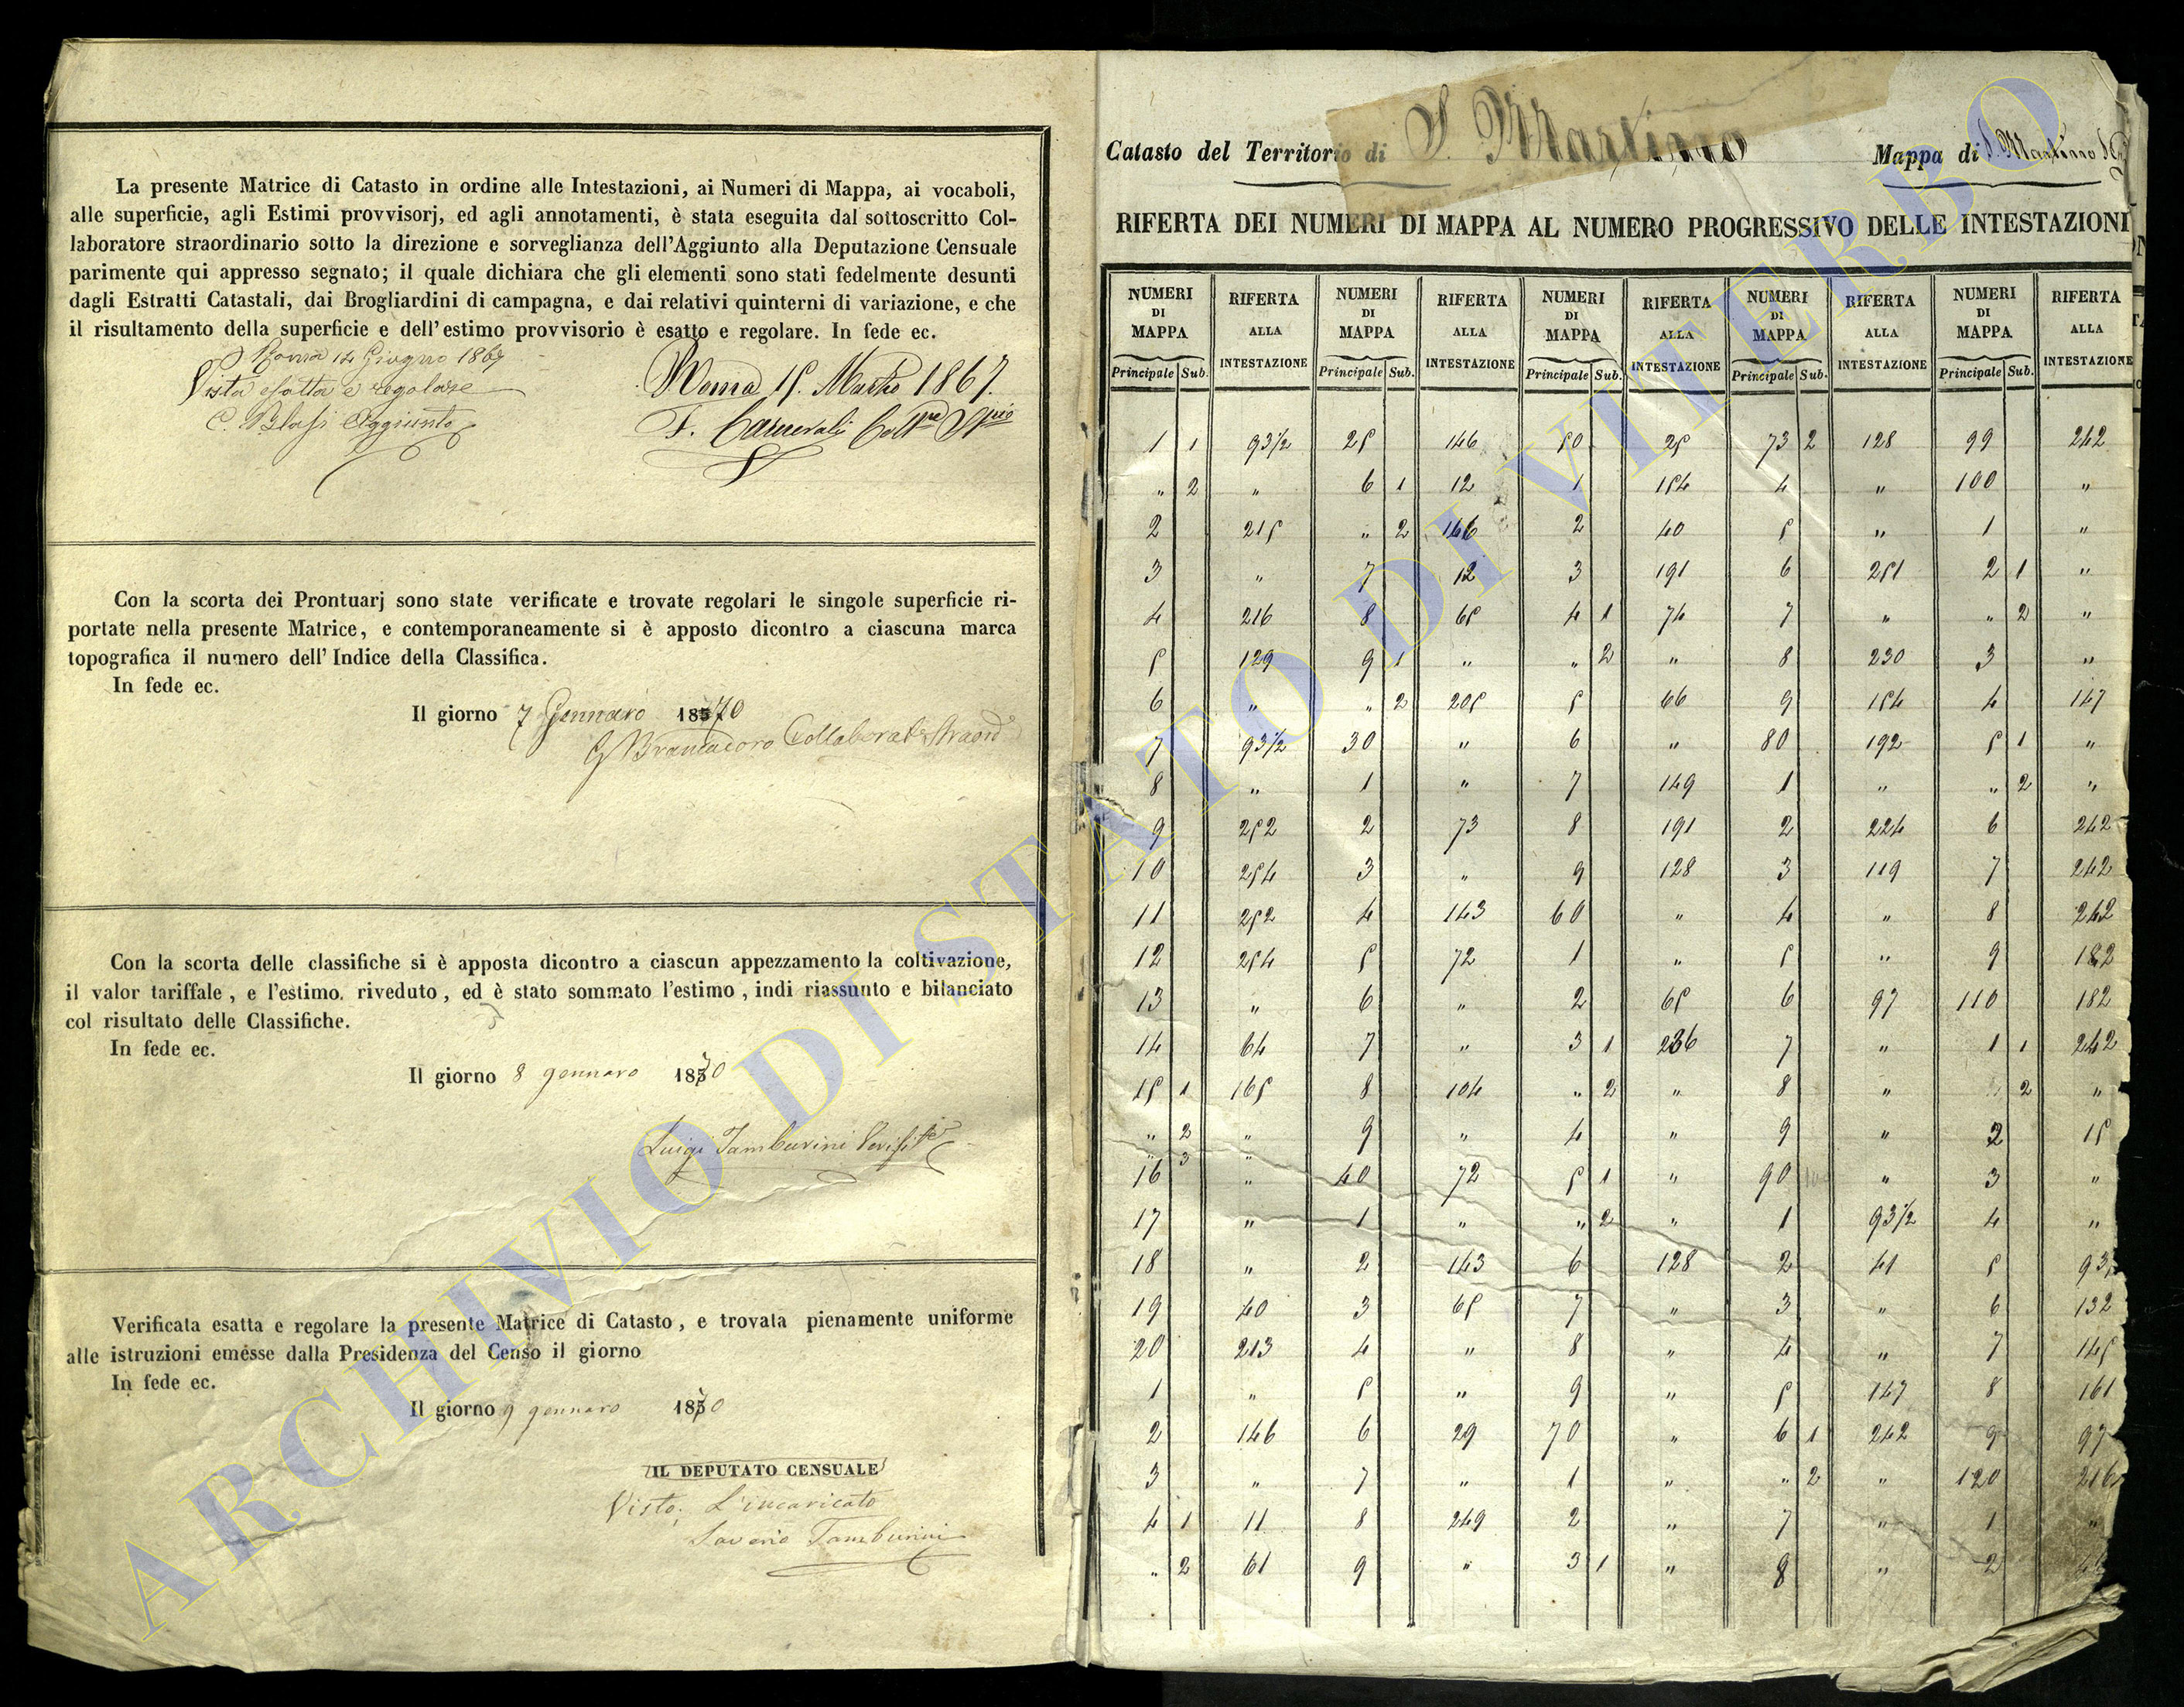 La presente Matrice di Catasto in ordine alle Intestazioni, ai Numeri di Mappa, ai vocaboli,
alle superficie, agli Estimi provvisorj, ed agli annotamenti, è stata eseguita dal sottoscritto Col-
laboratore straordinario sotto la direzione e sorveglianza dell'Aggiunto alla Deputazione Censuale
parimente qui appresso segnato; il quale dichiara che gli elementi sono stati fedelmente desunti
dagli Estratti Catastali, dai Brogliardini di campagna, e dai relativi quinterni di variazione, e che
il risultamento della superficie e dell'estimo provvisorio è esatto e regolare. In fede ec.
Roma 14 Giugno 1867
Vista esatta e regolare
C. Blasi Aggiunto
Roma 15. Marzo 1867.
F.
Con la scorta dei Prontuarj sono state verificate e trovate regolari le singole superficie ri-
portate nella presente Matrice, e contemporaneamente si è apposto dicontro a ciascuna marca
topografica il numero dell'Indice della Classifica.
In fede ec.
Il giorno 7 Gennaro 1870
G Brancadoro Collaborat.e Straord.
Con la scorta delle classifiche si è apposta dicontro a ciascun appezzamento la coltivazione,
il valor tariffale, e l'estimo. riveduto, ed è stato sommato l'estimo, indi riassunto e bilanciato
col risultato delle Classifiche.
In fede ec.
Il giorno 8 gennaro 1870
Luigi Tamburini
Verificata esatta e regolare la presente Matrice di Catasto, e trovata pienamente uniforme
alle istruzioni emesse dalla Presidenza del Censo il giorno
In fede ec.
Il giorno 9 gennaro 1870
IL DEPUTATO CENSUALE
Visto. L'incaricato
Saverio Tamburini
Catasto del Territorio di S. Martino Mappa di S. Martino
RIFERTA DEI NUMERI DI MAPPA AL NUMERO PROGRESSIVO DELLE INTESTAZIONI
NUMERI DI MAPPA RIFERTA ALLA INTESTAZIONE NUMERI DI MAPPA RIFERTA ALLA INTESTAZIONE NUMERI DI MAPPA RIFERTA ALLA INTESTAZIONE NUMERI DI MAPPA RIFERTA ALLA INTESTAZIONE NUMERI DI MAPPA RIFERTA ALLA INTESTAZIONE
Principale Sub. Principale Sub. Principale Sub. Principale Sub. Principale Sub.
1 1 93½ 25 146 50 25 73 2 128 99 242
" 2 " 6 1 12 1 154 4 " 100 "
2 215 " 2 146 2 40 5 " 1 "
3 " 7 12 3 191 6 251 2 1 "
4 216 8 65 4 1 74 7 " " 2 "
5 129 9 1 " " 2 " 8 230 3 "
6 " " 2 205 5 66 9 154 4 147
7 93½ 30 " 6 " 80 192 5 1 "
8 " 1 " 7 149 1 " " 2 "
9 252 2 73 8 191 2 224 6 242
10 254 3 " 9 128 3 119 7 242
11 252 4 143 60 " 4 " 8 242
12 254 5 72 1 " 5 " 9 182
13 " 6 " 2 65 6 97 110 182
14 64 7 " 3 1 236 7 " 1 1 242
15 1 165 8 104 " 2 " 8 " " 2 "
" 2 " 9 " 4 " 9 " 2 15
" 3 "
16 " 40 72 5 1 " 90 " 3 "
17 " 1 " " 2 " 1 93½ 4 "
18 " 2 143 6 128 2 41 5
19 40 3 65 7 " 3 " 6 132
20 213 4 " 8 " 4 " 7 145
1 " 5 " 9 " 5 147 8 161
2 146 6 29 70 " 6 1 242 9 97
3 " 7 " 1 " " 2 " 120 216
4 1 11 8 249 2 " 7 " 1 "
" 2 61 9 " 3 1 " 8 " 2
ARCHIVIO DI STATO DI VITERBO